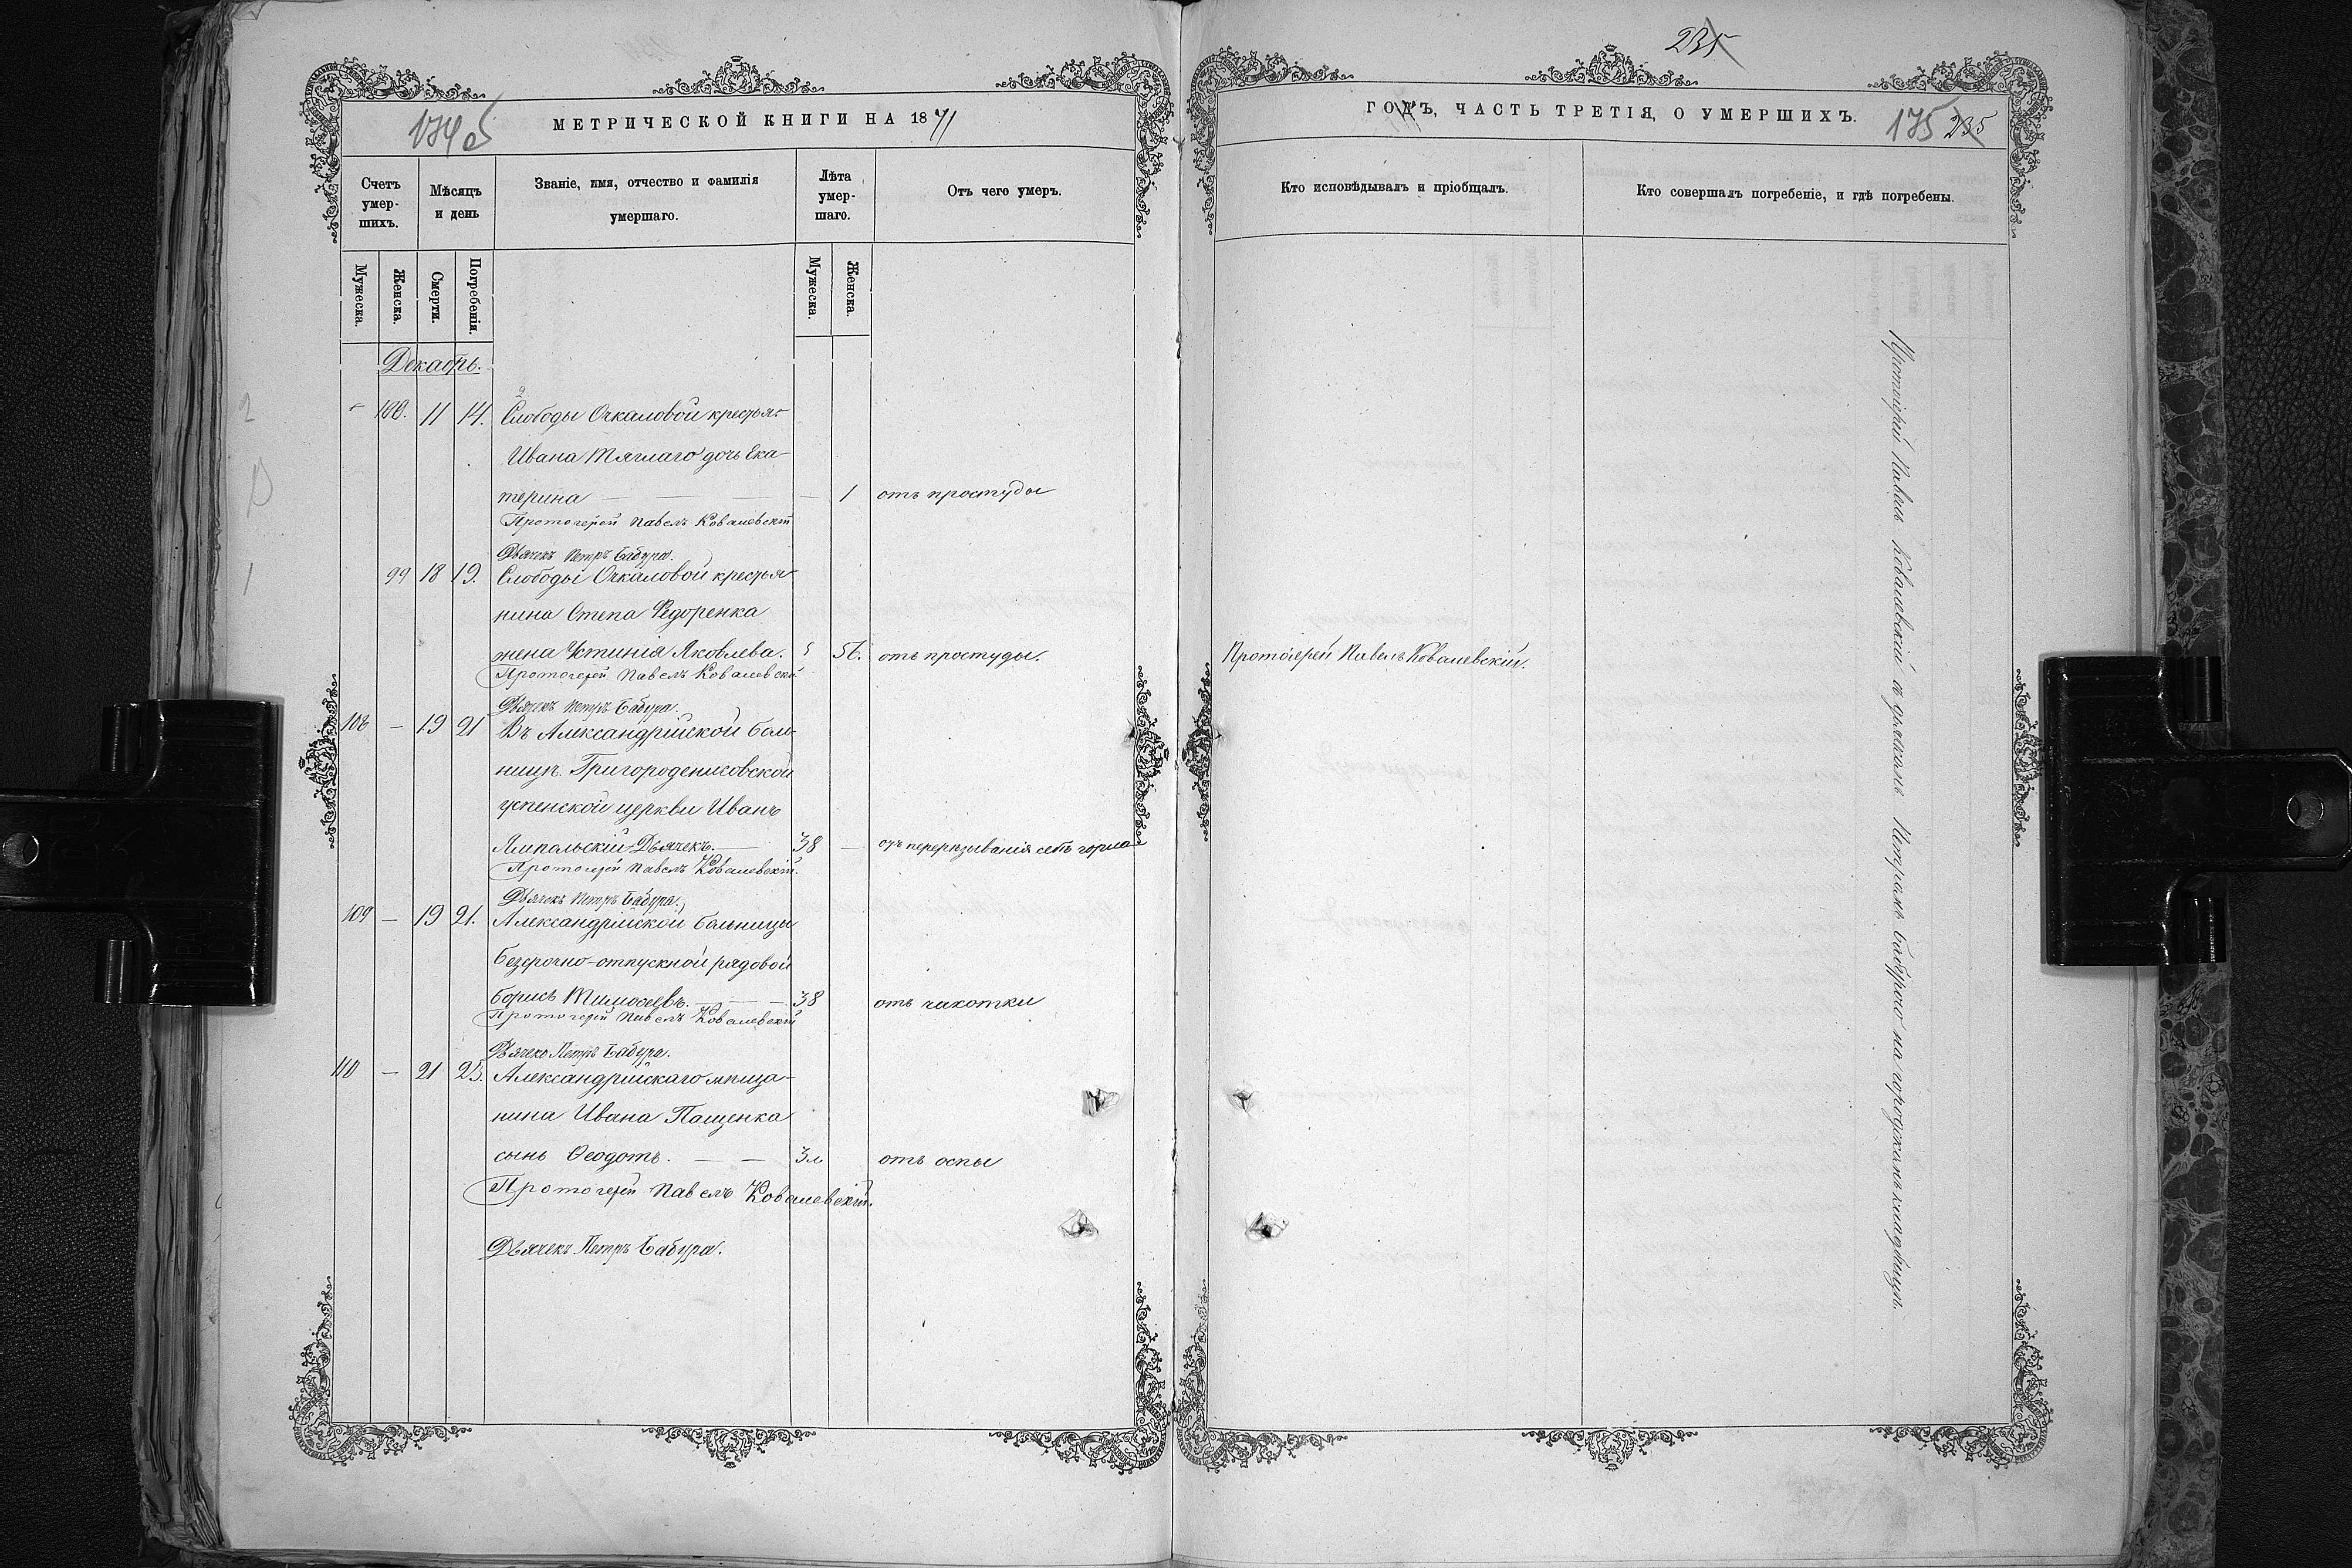 174 об
МЕТРИЧЕСКОЙ КНИГИ НА 1871
Счетъ умер-шихъ.
Мѣсяцъ и день
Званіе, имя, отчество и фамилія умершаго.
Лѣта умер-шаго.
Отъ чего умеръ.
Мужеска.
Женска.
Смерти.
Погребенія.
Мужеска.
Женска.
Декабрь.
100. 11 14. Слободы Очкаловой крестья-
Ивана Тяглаго дочь Ека-
терина — — — — 1 отъ простуды
Протоіерей Павелъ Ковалевскій
Дьячекъ Петръ Бабура.
99 18 19. Слободы Очкаловой крестья-
нина Степа Федоренка
жена Устинія Яковлева. 56. отъ простуды.
Протоіерей Павелъ Ковалевскій
Дьячекъ Петръ Бабура.
108 — 19 21 Въ Александрійской боль-
ницѣ. Григороденисовской
успенской церкви Иванъ
Ямпальскій Дьячекъ. — 38 — отъ перерѣзыванія себѣ горла
Протоіерей Павелъ Ковалевскій.
Дьячекъ Петръ Бабура.
109 — 19 21. Александрійской больницы
безсрочно-отпускной рядовой
Борисъ Тимофеевъ. — — — 38 отъ чахотки
Протоіерей Павелъ Ковалевскій
Дьячекъ Петръ Бабура.
110 — 21 25. Александрійскаго мѣща-
нина Ивана Пащенка
сынъ Ѳеодотъ. — — 3 отъ оспы
Протоіерей Павелъ Ковалевскій.
Дьячекъ Петръ Бабура.
235
ГОДЪ, ЧАСТЬ ТРЕТІЯ, О УМЕРШИХЪ.
175 235
Кто исповѣдывалъ и пріобщалъ.
Кто совершалъ погребеніе, и гдѣ погребены.
Протоіерей Павелъ Ковалевскій.
Протоіерей Павелъ Ковалевскій съ дьячкомъ Петромъ Бабурою на городскомъ кладбищѣ.